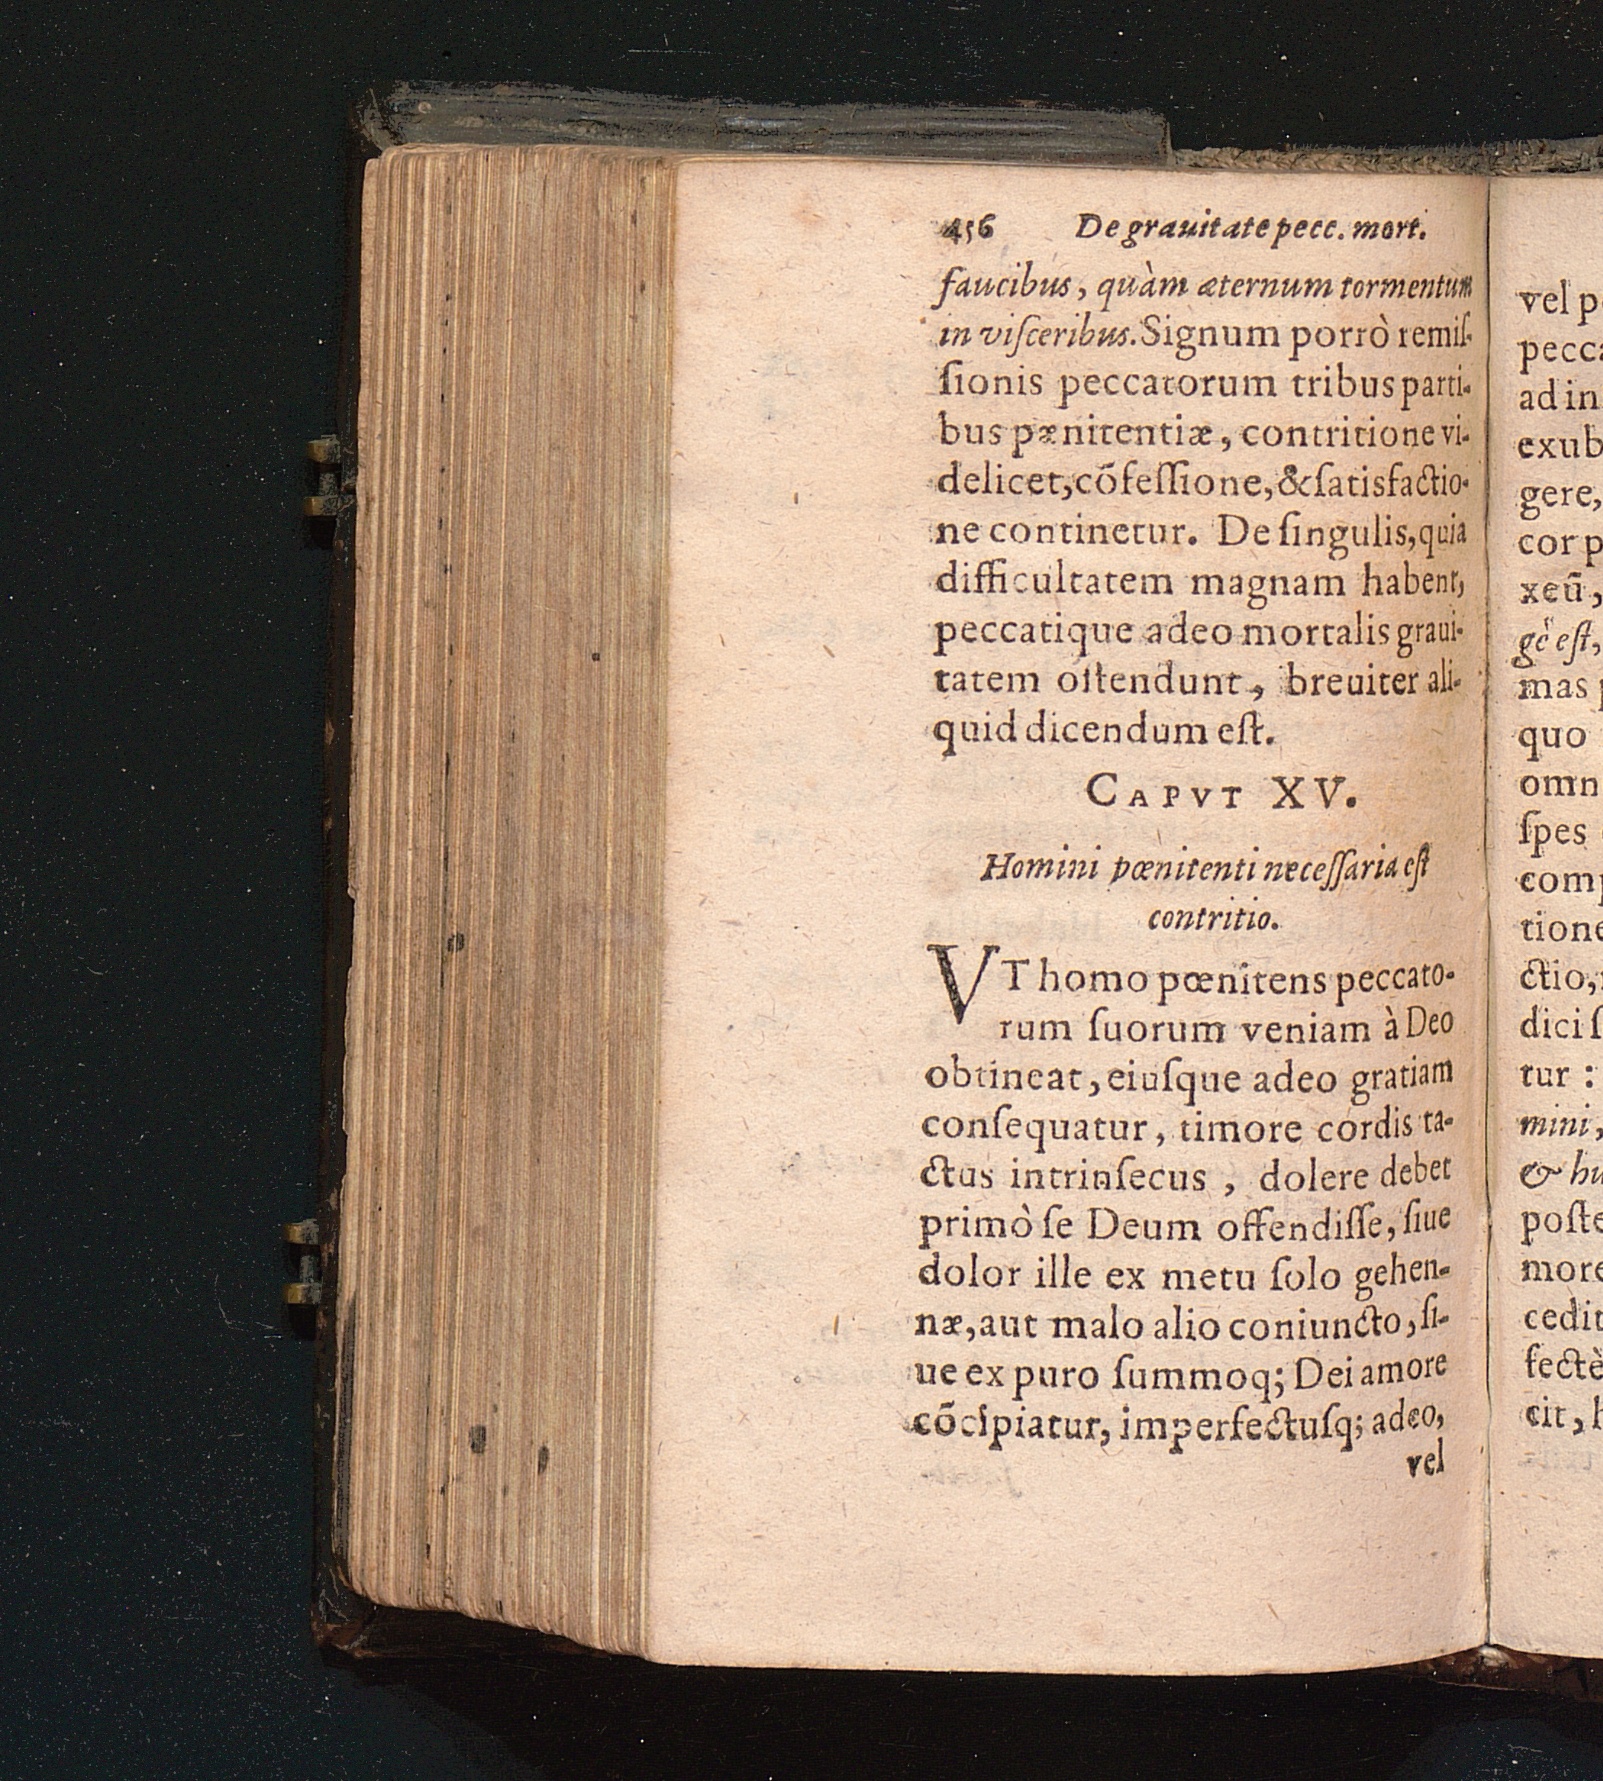 456 De grauitate pecc. mort.
faucibus, quàm æternum tormentum
in viſceribus. Signum porrò remiſ-
ſionis peccatorum tribus parti-
bus pænitentiæ, contritione vi-
delicet, cõfeſſione, & ſatisfactio-
ne continetur. De ſingulis, quia
difficultatem magnam habent,
peccatique adeo mortalis graui-
tatem oſtendunt, breuiter ali-
quid dicendum eſt.
CAPVT XV.
Homini pœnitenti neceſſaria eſt
contritio.
VT homo pœnitens peccato-
rum ſuorum veniam à Deo
obtineat, eiuſque adeo gratiam
conſequatur, timore cordis ta-
ctus intrinſecus, dolere debet
primò ſe Deum offendiſſe, ſiue
dolor ille ex metu ſolo gehen-
næ, aut malo alio coniuncto, ſi-
ue ex puro ſummoq; Dei amore
cõcipiatur, imperfectuſq; adeo,
vel
vel
ad in
gere,
cor
xeũ,
eſt,
mas
quo
ſpes
dici
tur:
mini,
&